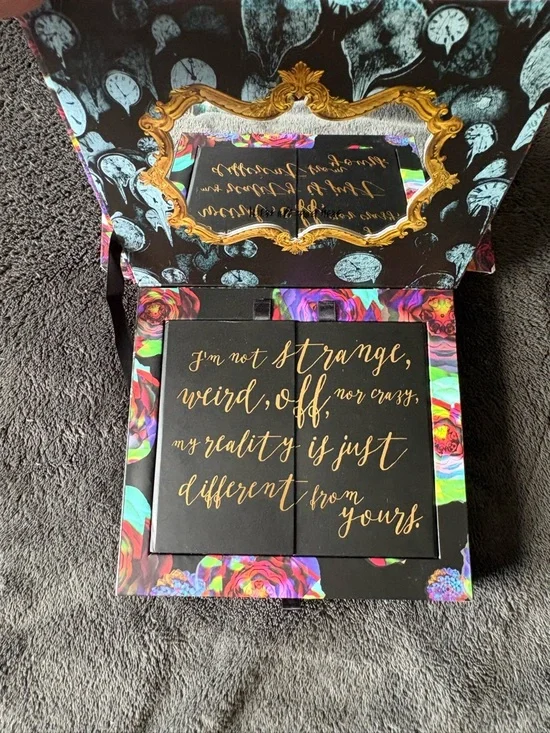 I'm not strange,
weird, off, nor crazy,
my reality is just
different from
yours.